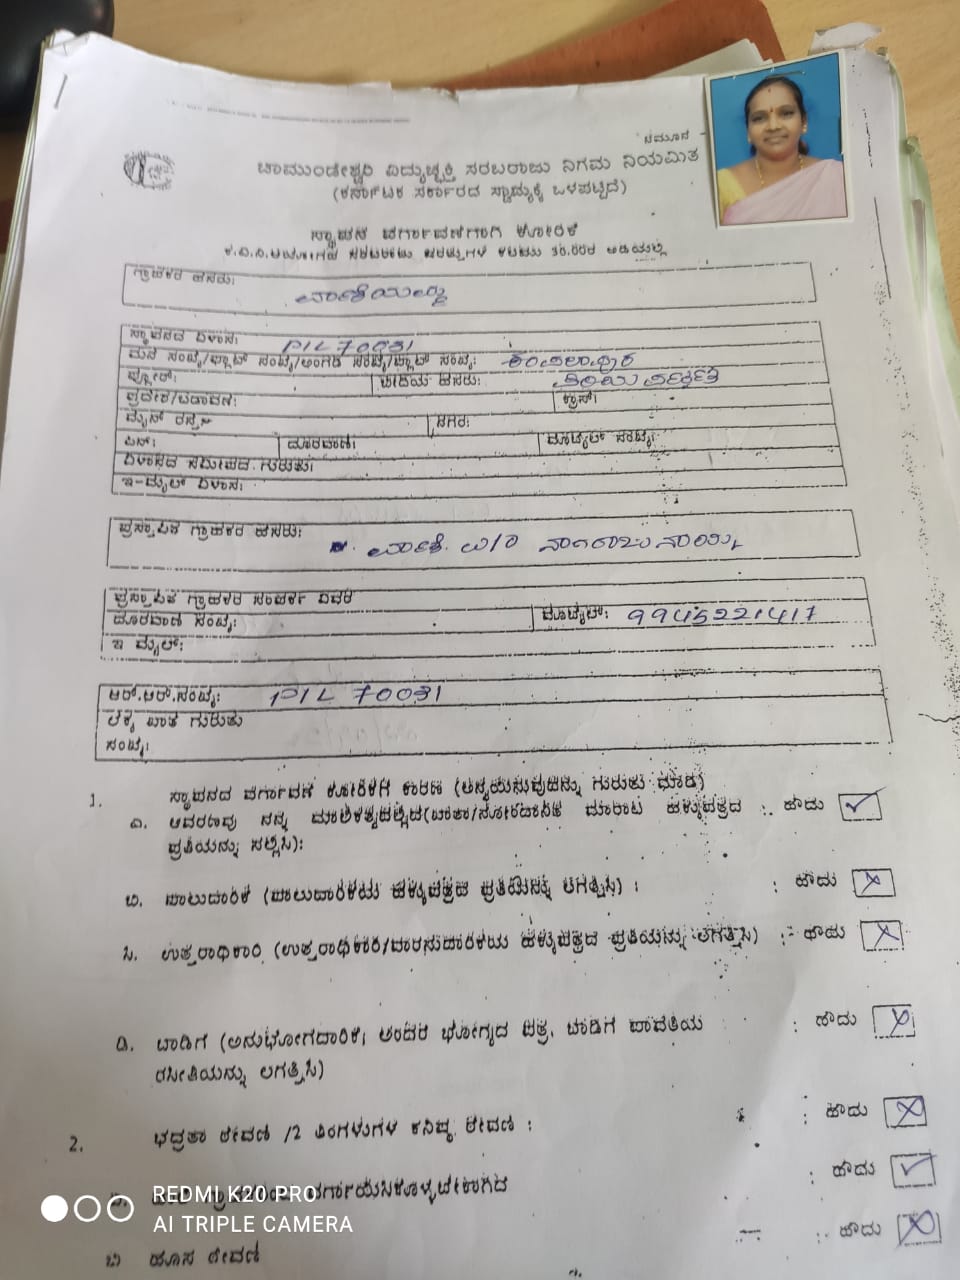 ನಮೂನೆ -
ಚಾಮುಂಡೇಶ್ವರಿ ವಿದ್ಯುಚ್ಛಕ್ತಿ ಸರಬರಾಜು ನಿಗಮ ನಿಯಮಿತ
(ಕರ್ನಾಟಕ ಸರ್ಕಾರದ ಸ್ವಾಮ್ಯಕ್ಕೆ ಒಳಪಟ್ಟಿದೆ)
ಸ್ಥಾಪನ ವರ್ಗಾವಣೆಗಾಗಿ ಕೋರಿಕೆ
ಗ್ರಾಹಕರ ಹೆಸರು:
ಸ್ಥಾವರದ ವಿಳಾಸ: PIL 70031
ಮನೆ ಸಂಖ್ಯೆ/ಪ್ಲಾಟ್ ಸಂಖ್ಯೆ/ಅಂಗಡಿ ಸಂಖ್ಯೆ/ಫ್ಲಾಟ್ ಸಂಖ್ಯೆ:
ಫ್ಲೋರ್: ಬೀದಿಯ ಹೆಸರು:
ಪ್ರದೇಶ/ಬಡಾವಣೆ: ಕ್ರಾಸ್:
ಮೈನ್ ರಸ್ತೆ: ನಗರ:
ಪಿನ್: ದೂರವಾಣಿ: ಮೊಬೈಲ್ ಸಂಖ್ಯೆ:
ವಿಳಾಸದ ಸಮೀಪದ ಗುರುತು:
ಇ-ಮೈಲ್ ವಿಳಾಸ:
ಪ್ರಸ್ತಾಪಿತ ಗ್ರಾಹಕರ ಹೆಸರು: ವಾಣಿ W/o ನಾಗರಾಜು
ಪ್ರಸ್ತಾಪಿತ ಗ್ರಾಹಕರ ಸಂಪರ್ಕ ವಿವರ
ದೂರವಾಣಿ ಸಂಖ್ಯೆ: ಮೊಬೈಲ್: 9945221417
ಇ ಮೈಲ್:
ಆರ್.ಆರ್.ಸಂಖ್ಯೆ: PIL 70031
ಲೆಕ್ಕ ಖಾತೆ ಗುರುತು
ಸಂಖ್ಯೆ:
1. ಸ್ಥಾವರದ ವರ್ಗಾವಣೆ ಕೋರಿಕೆಗೆ ಕಾರಣ (ಅನ್ವಯಿಸುವುದನ್ನು ಗುರುತು ಮಾಡಿ)
ಎ. ಆವರಣವು ನನ್ನ ಮಾಲಿಕತ್ವದಲ್ಲಿದೆ(ಖಾತಾ/ನೋಂದಾನಿತ ಮಾರಾಟ ಹಕ್ಕುಪತ್ರದ : ಹೌದು ✓
ಪ್ರತಿಯನ್ನು ಸಲ್ಲಿಸಿ):
ಬಿ. ಪಾಲುದಾರಿಕೆ (ಪಾಲುದಾರಿಕೆಯ ಹಕ್ಕುಪತ್ರದ ಪ್ರತಿಯನ್ನು ಲಗತ್ತಿಸಿ) : : ಹೌದು X
ಸಿ. ಉತ್ತರಾಧಿಕಾರಿ (ಉತ್ತರಾಧಿಕಾರಿ/ವಾರಸುದಾರಿಕೆಯ ಹಕ್ಕುಪತ್ರದ ಪ್ರತಿಯನ್ನು ಲಗತ್ತಿಸಿ) : ಹೌದು X
ಡಿ. ಬಾಡಿಗೆ (ಅನುಭೋಗದಾರಿಕೆ, ಅಂದರೆ ಭೋಗ್ಯದ ಪತ್ರ, ಬಾಡಿಗೆ ಪಾವತಿಯ : ಹೌದು X
ರಸೀತಿಯನ್ನು ಲಗತ್ತಿಸಿ)
2. ಭದ್ರತಾ ಠೇವಣಿ /2 ತಿಂಗಳುಗಳ ಕನಿಷ್ಠ ಠೇವಣಿ : : ಹೌದು X
ವರ್ಗಾಯಿಸಿಕೊಳ್ಳಬೇಕಾಗಿದೆ : ಹೌದು ✓
ಬಿ ಹೊಸ ಠೇವಣಿ : ಹೌದು X
REDMI K20 PRO
AI TRIPLE CAMERA